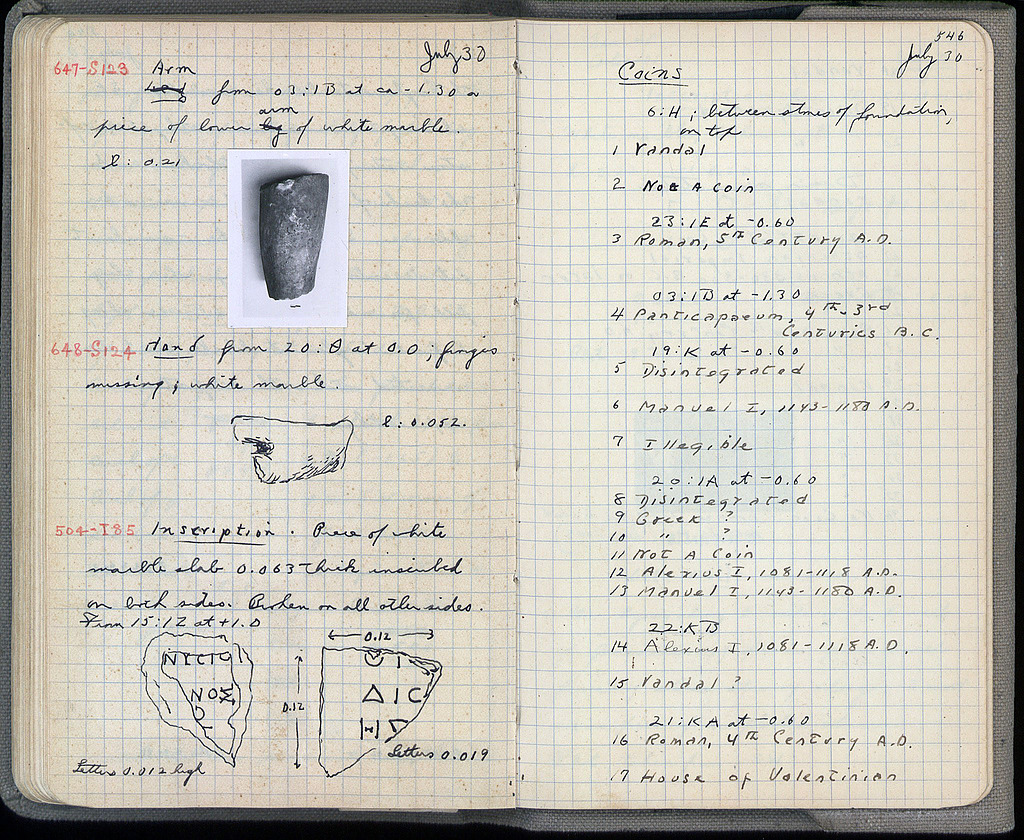 July 30
647-S123 Arm
Leg from 03:1B at ca -1.30 a
arm
piece of lower leg of white marble.
l: 0.21
648-S124 Hand from 20:Θ at 0.0; fingers
missing; white marble.
l: 0.052.
504-I85 Inscription. Piece of white
marble slab 0.063 thick inscribed
on both sides. Broken on all other sides.
From 15:IZ at +1.0
0.12
ΝΥCΙΟΙ
ΝΟΣ
0.12
ΔΙC
Letters 0.019
Letters 0.012 high
546
July 30
Coins
6:H; between stones of foundation,
on top
1 Vandal
2 Not A Coin
23:1E at -0.60
3 Roman, 5th Century A.D.
03:1B at -1.30
4 Panticapaeum, 4th-3rd
Centuries B.C.
19:K at -0.60
5 Disintegrated
6 Manuel I, 1143-1180 A.D.
7 Illegible
20:1A at -0.60
8 Disintegrated
9 Greek ?
10 " ?
11 Not A Coin
12 Alexius I, 1081-1118 A.D.
13 Manuel I, 1143-1180 A.D.
22:KB
14 Alexius I, 1081-1118 A.D.
15 Vandal ?
21:KA at -0.60
16 Roman, 4th Century A.D.
17 House of Valentinian